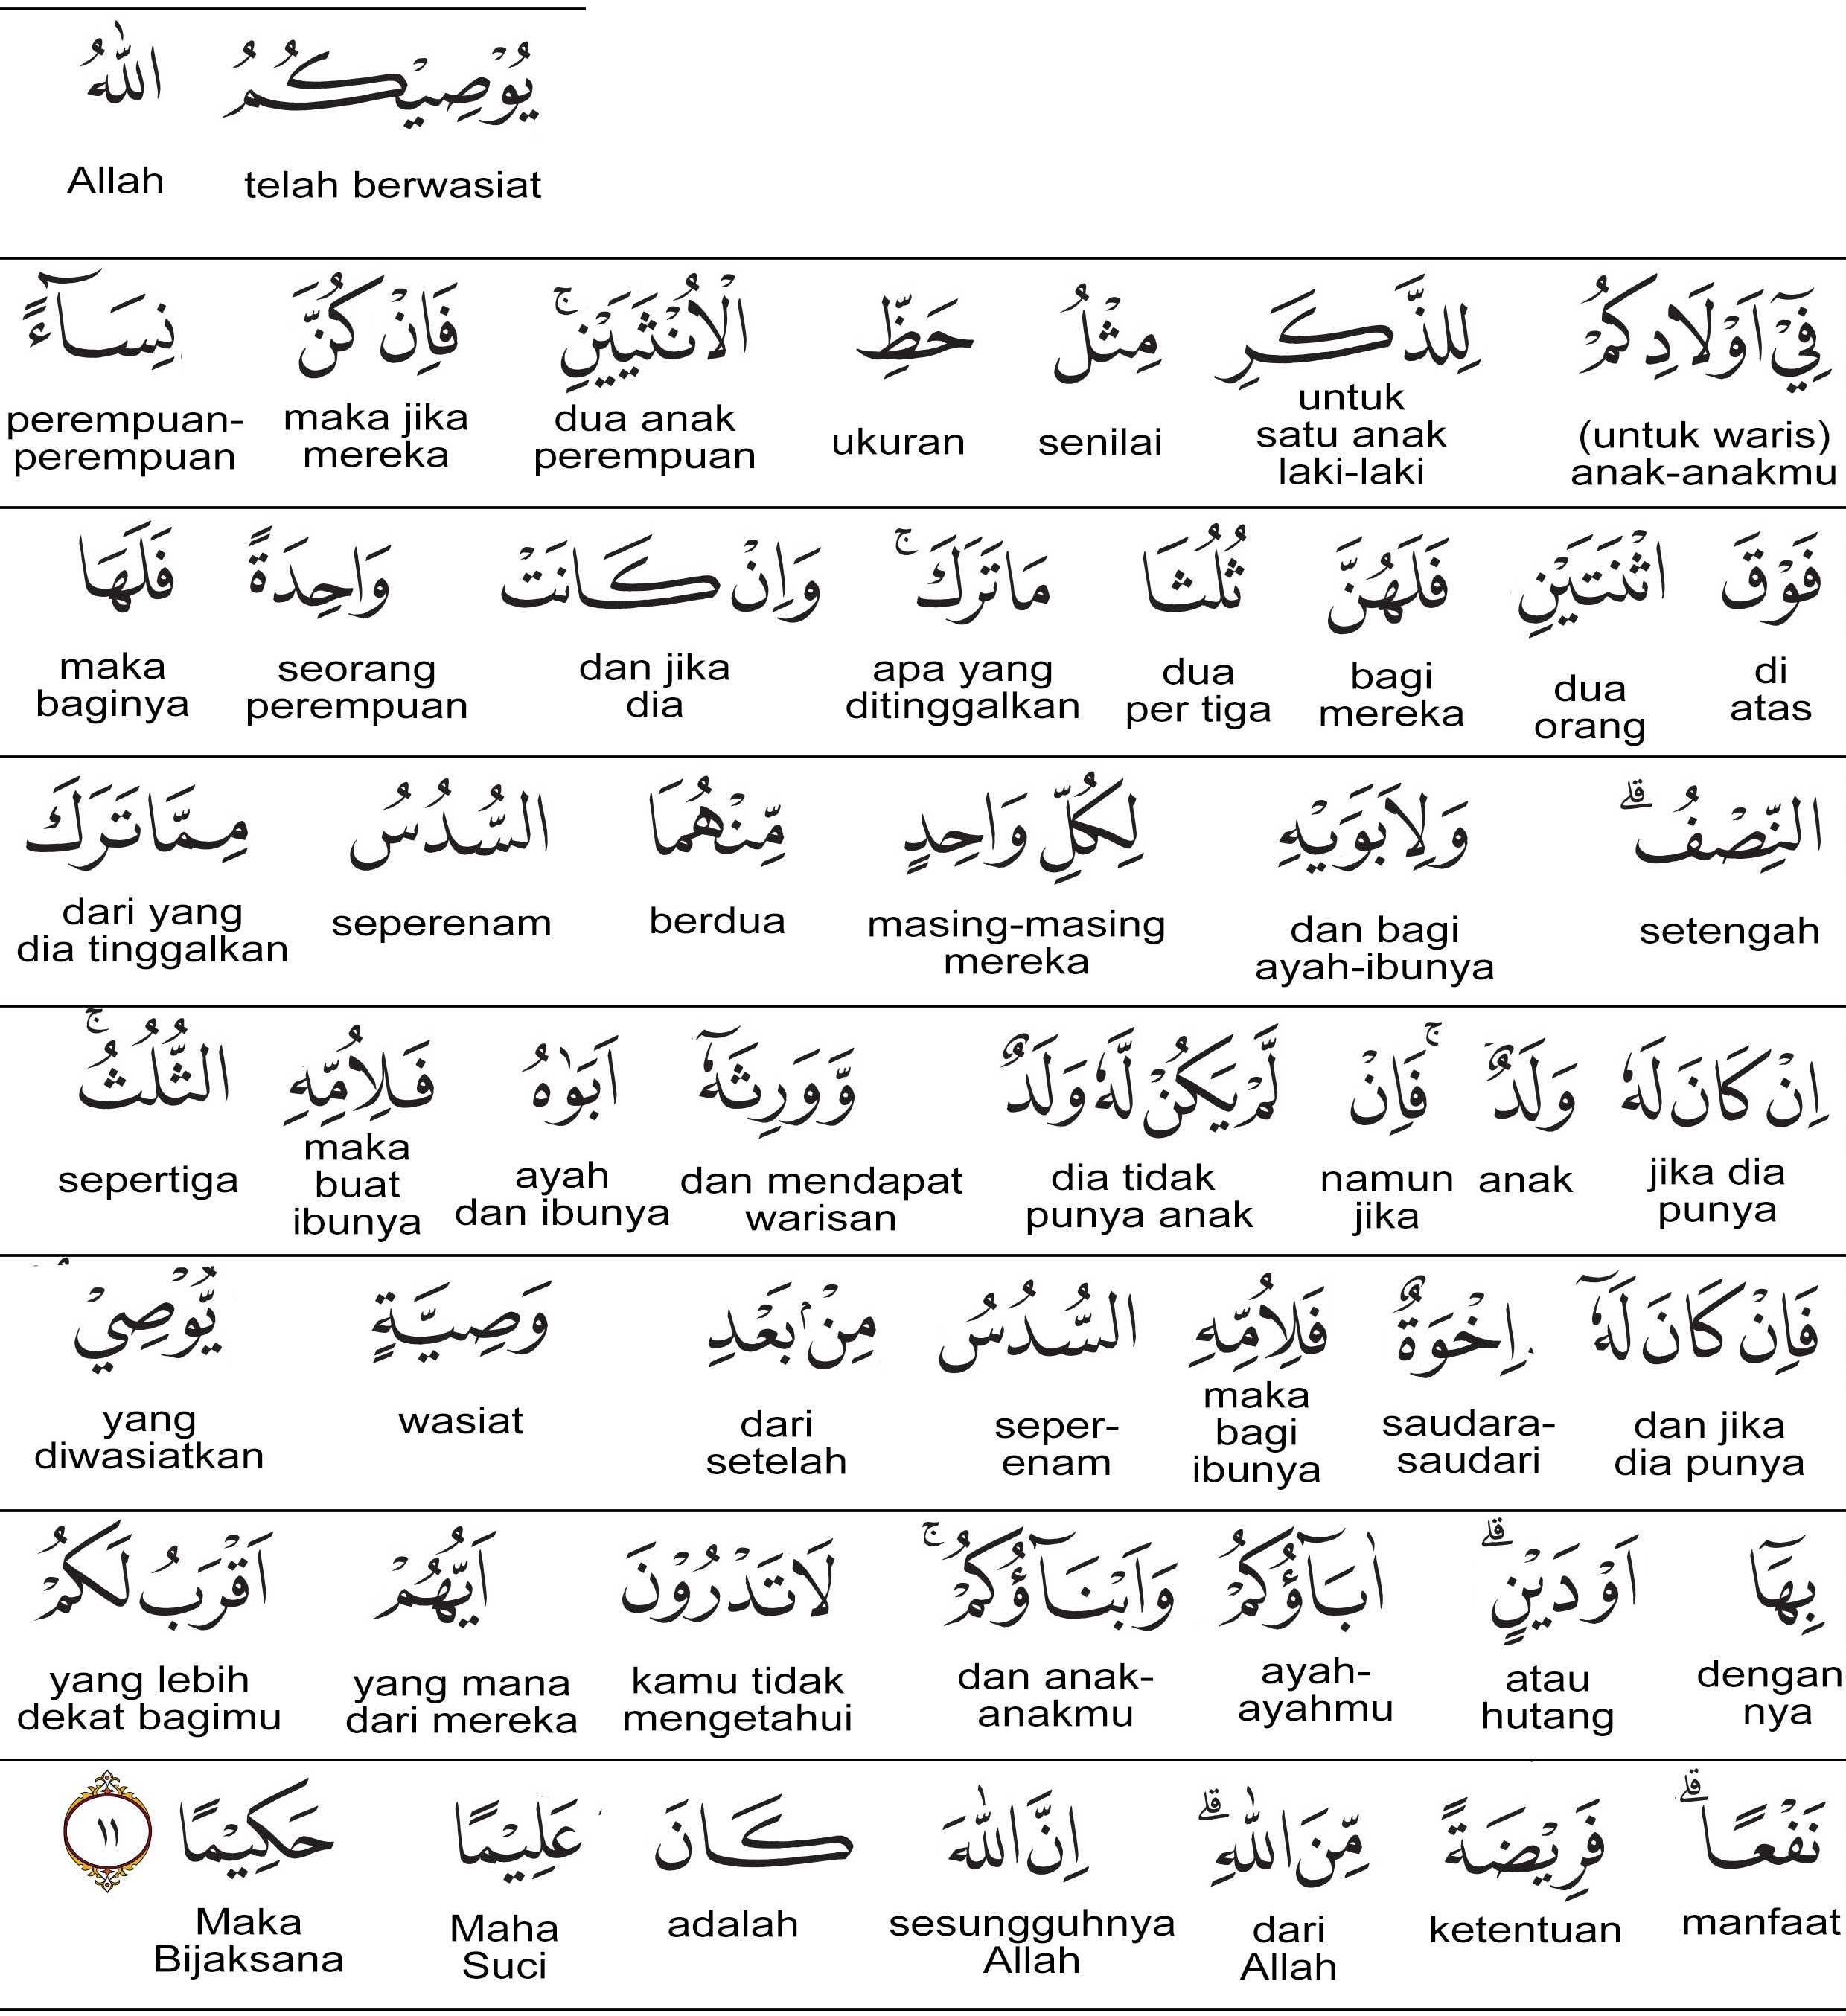 يُوْصِيْكُمُ اللّٰهُ
telah berwasiat Allah
فِيْٓ اَوْلَادِكُمْ لِلذَّكَرِ مِثْلُ حَظِّ الْاُنْثَيَيْنِۚ فَاِنْ كُنَّ نِسَاۤءً
(untuk waris) anak-anakmu untuk satu anak laki-laki senilai ukuran dua anak perempuan maka jika mereka perempuan-perempuan
فَوْقَ اثْنَتَيْنِ فَلَهُنَّ ثُلُثَا مَا تَرَكَۚ وَاِنْ كَانَتْ وَاحِدَةً فَلَهَا
di atas dua orang bagi mereka dua per tiga apa yang ditinggalkan dan jika dia seorang perempuan maka baginya
النِّصْفُۗ وَلِاَبَوَيْهِ لِكُلِّ وَاحِدٍ مِّنْهُمَا السُّدُسُ مِمَّا تَرَكَ
setengah dan bagi ayah-ibunya masing-masing mereka berdua seperenam dari yang dia tinggalkan
اِنْ كَانَ لَهٗ وَلَدٌۚ فَاِنْ لَّمْ يَكُنْ لَّهٗ وَلَدٌ وَّوَرِثَهٗٓ اَبَوٰهُ فَلِاُمِّهِ الثُّلُثُۚ
jika dia punya anak namun jika dia tidak punya anak dan mendapat warisan ayah dan ibunya maka buat ibunya sepertiga
فَاِنْ كَانَ لَهٗٓ اِخْوَةٌ فَلِاُمِّهِ السُّدُسُ مِنْۢ بَعْدِ وَصِيَّةٍ يُّوْصِيْ
dan jika dia punya saudara-saudari maka bagi ibunya seper-enam dari setelah wasiat yang diwasiatkan
بِهَآ اَوْ دَيْنٍۗ اٰبَاۤؤُكُمْ وَاَبْنَاۤؤُكُمْۚ لَا تَدْرُوْنَ اَيُّهُمْ اَقْرَبُ لَكُمْ
dengan nya atau hutang ayah-ayahmu dan anak-anakmu kamu tidak mengetahui yang mana dari mereka yang lebih dekat bagimu
نَفْعًاۗ فَرِيْضَةً مِّنَ اللّٰهِۗ اِنَّ اللّٰهَ كَانَ عَلِيْمًا حَكِيْمًا ١١
manfaat ketentuan dari Allah sesungguhnya Allah adalah Maha Suci Maka Bijaksana